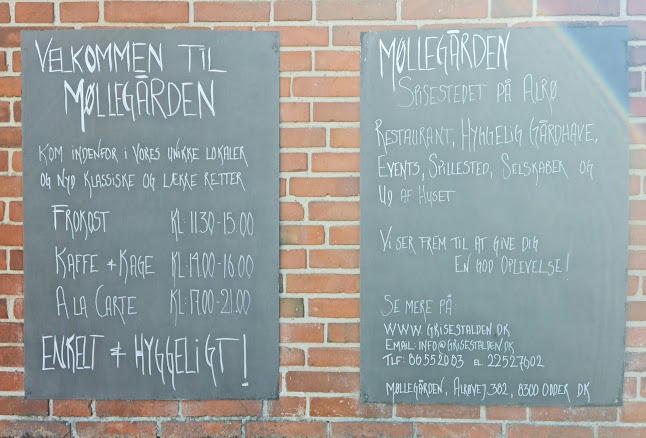 VELKOMMEN TIL
MØLLEGÅRDEN
KOM INDENFOR I VORES UNIKKE LOKALER
OG NYD KLASSISKE OG LÆKRE RETTER
FROKOST KL: 11.30-15.00
KAFFE + KAGE KL: 14.00-16.00
A LA CARTE KL: 17.00-21.00
ENKELT + HYGGELIGT!
MØLLEGÅRDEN
SPISESTEDET PÅ ALRØ
RESTAURANT, HYGGELIG GÅRDHAVE,
EVENTS, SPILLESTED, SELSKABER OG
UD AF HUSET
VI SER FREM TIL AT GIVE DIG
EN GOD OPLEVELSE!
SE MERE PÅ:
WWW.GRISESTALDEN.DK
EMAIL: INFO@GRISESTALDEN.DK
TLF: 86552083 EL 22527602
MØLLEGÅRDEN, ALRØVEJ 382, 8300 ODDER DK